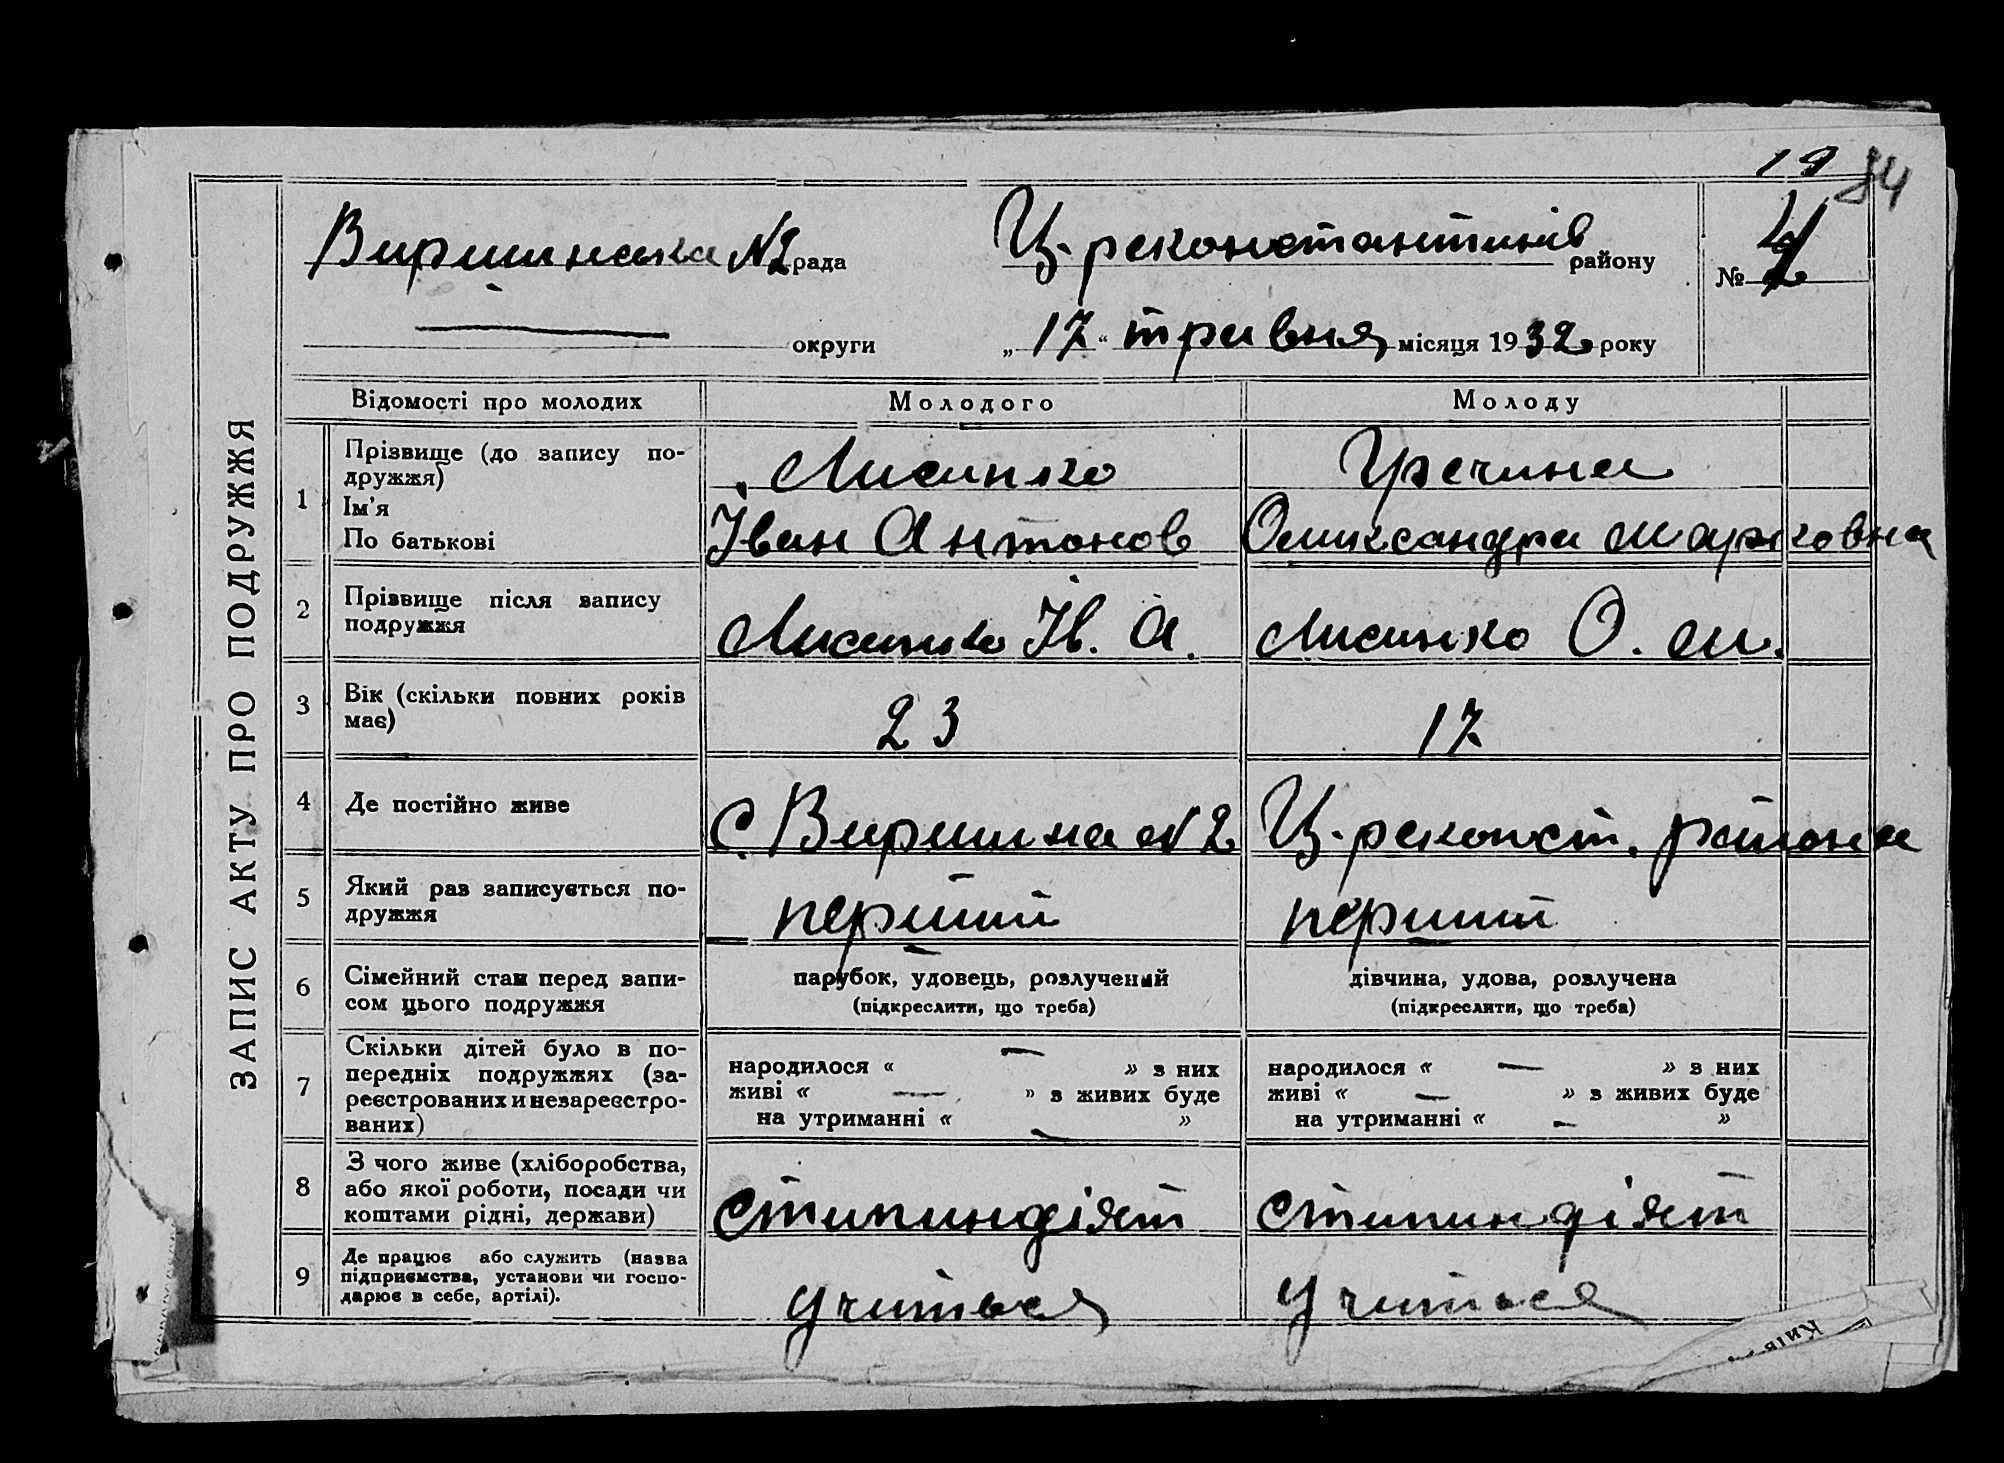 19 84
Виришинська №2 рада Ц-реконстантинів району № 4
округи „17“ тривня місяця 1932 року
ЗАПИС АКТУ ПРО ПОДРУЖЖЯ
Відомості про молодих Молодого Молоду
1 Прізвище (до запису по-
дружжя) Лисинко Гречина
Ім'я
По батькові Іван Антонов Оликсандра Марковна
2 Прізвище після запису
подружжя Лисинко Ів. А. Лисинко О. М.
3 Вік (скільки повних років
має) 23 17
4 Де постійно живе С. Виришна №2 Ц-реконст. района
5 Який раз записується по-
дружжя перший перший
6 Сімейний стан перед запи-
сом цього подружжя
парубок, удовець, розлучений
(підкреслити, що треба)
дівчина, удова, розлучена
(підкреслити, що треба)
7 Скільки дітей було в по-
передніх подружжях (за-
реєстрованих и незареєстро-
ваних)
народилося « — » з них
живі « — » з живих буде
на утриманні « — »
народилося « — » з них
живі « — » з живих буде
на утриманні « — »
8 З чого живе (хліборобства,
або якої роботи, посади чи
коштами рідні, держави) стипиндіят стипиндіят
9 Де працює або служить (назва
підприємства, установи чи госпо-
дарює в себе, артілі). учиться учиться
Київ